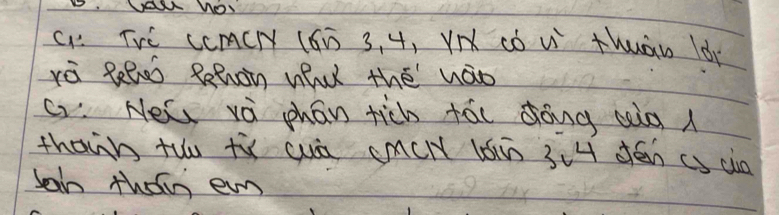 B. Câu hỏi
C1: Trc CCMCN lần 3, 4, VN có vì thuận lợi
và khó khăn như thế nào
C2: Nêu và phân tích tác động của 1
thành tựu từ của CMCN lần 3, 4 đến cs của
bản thân em